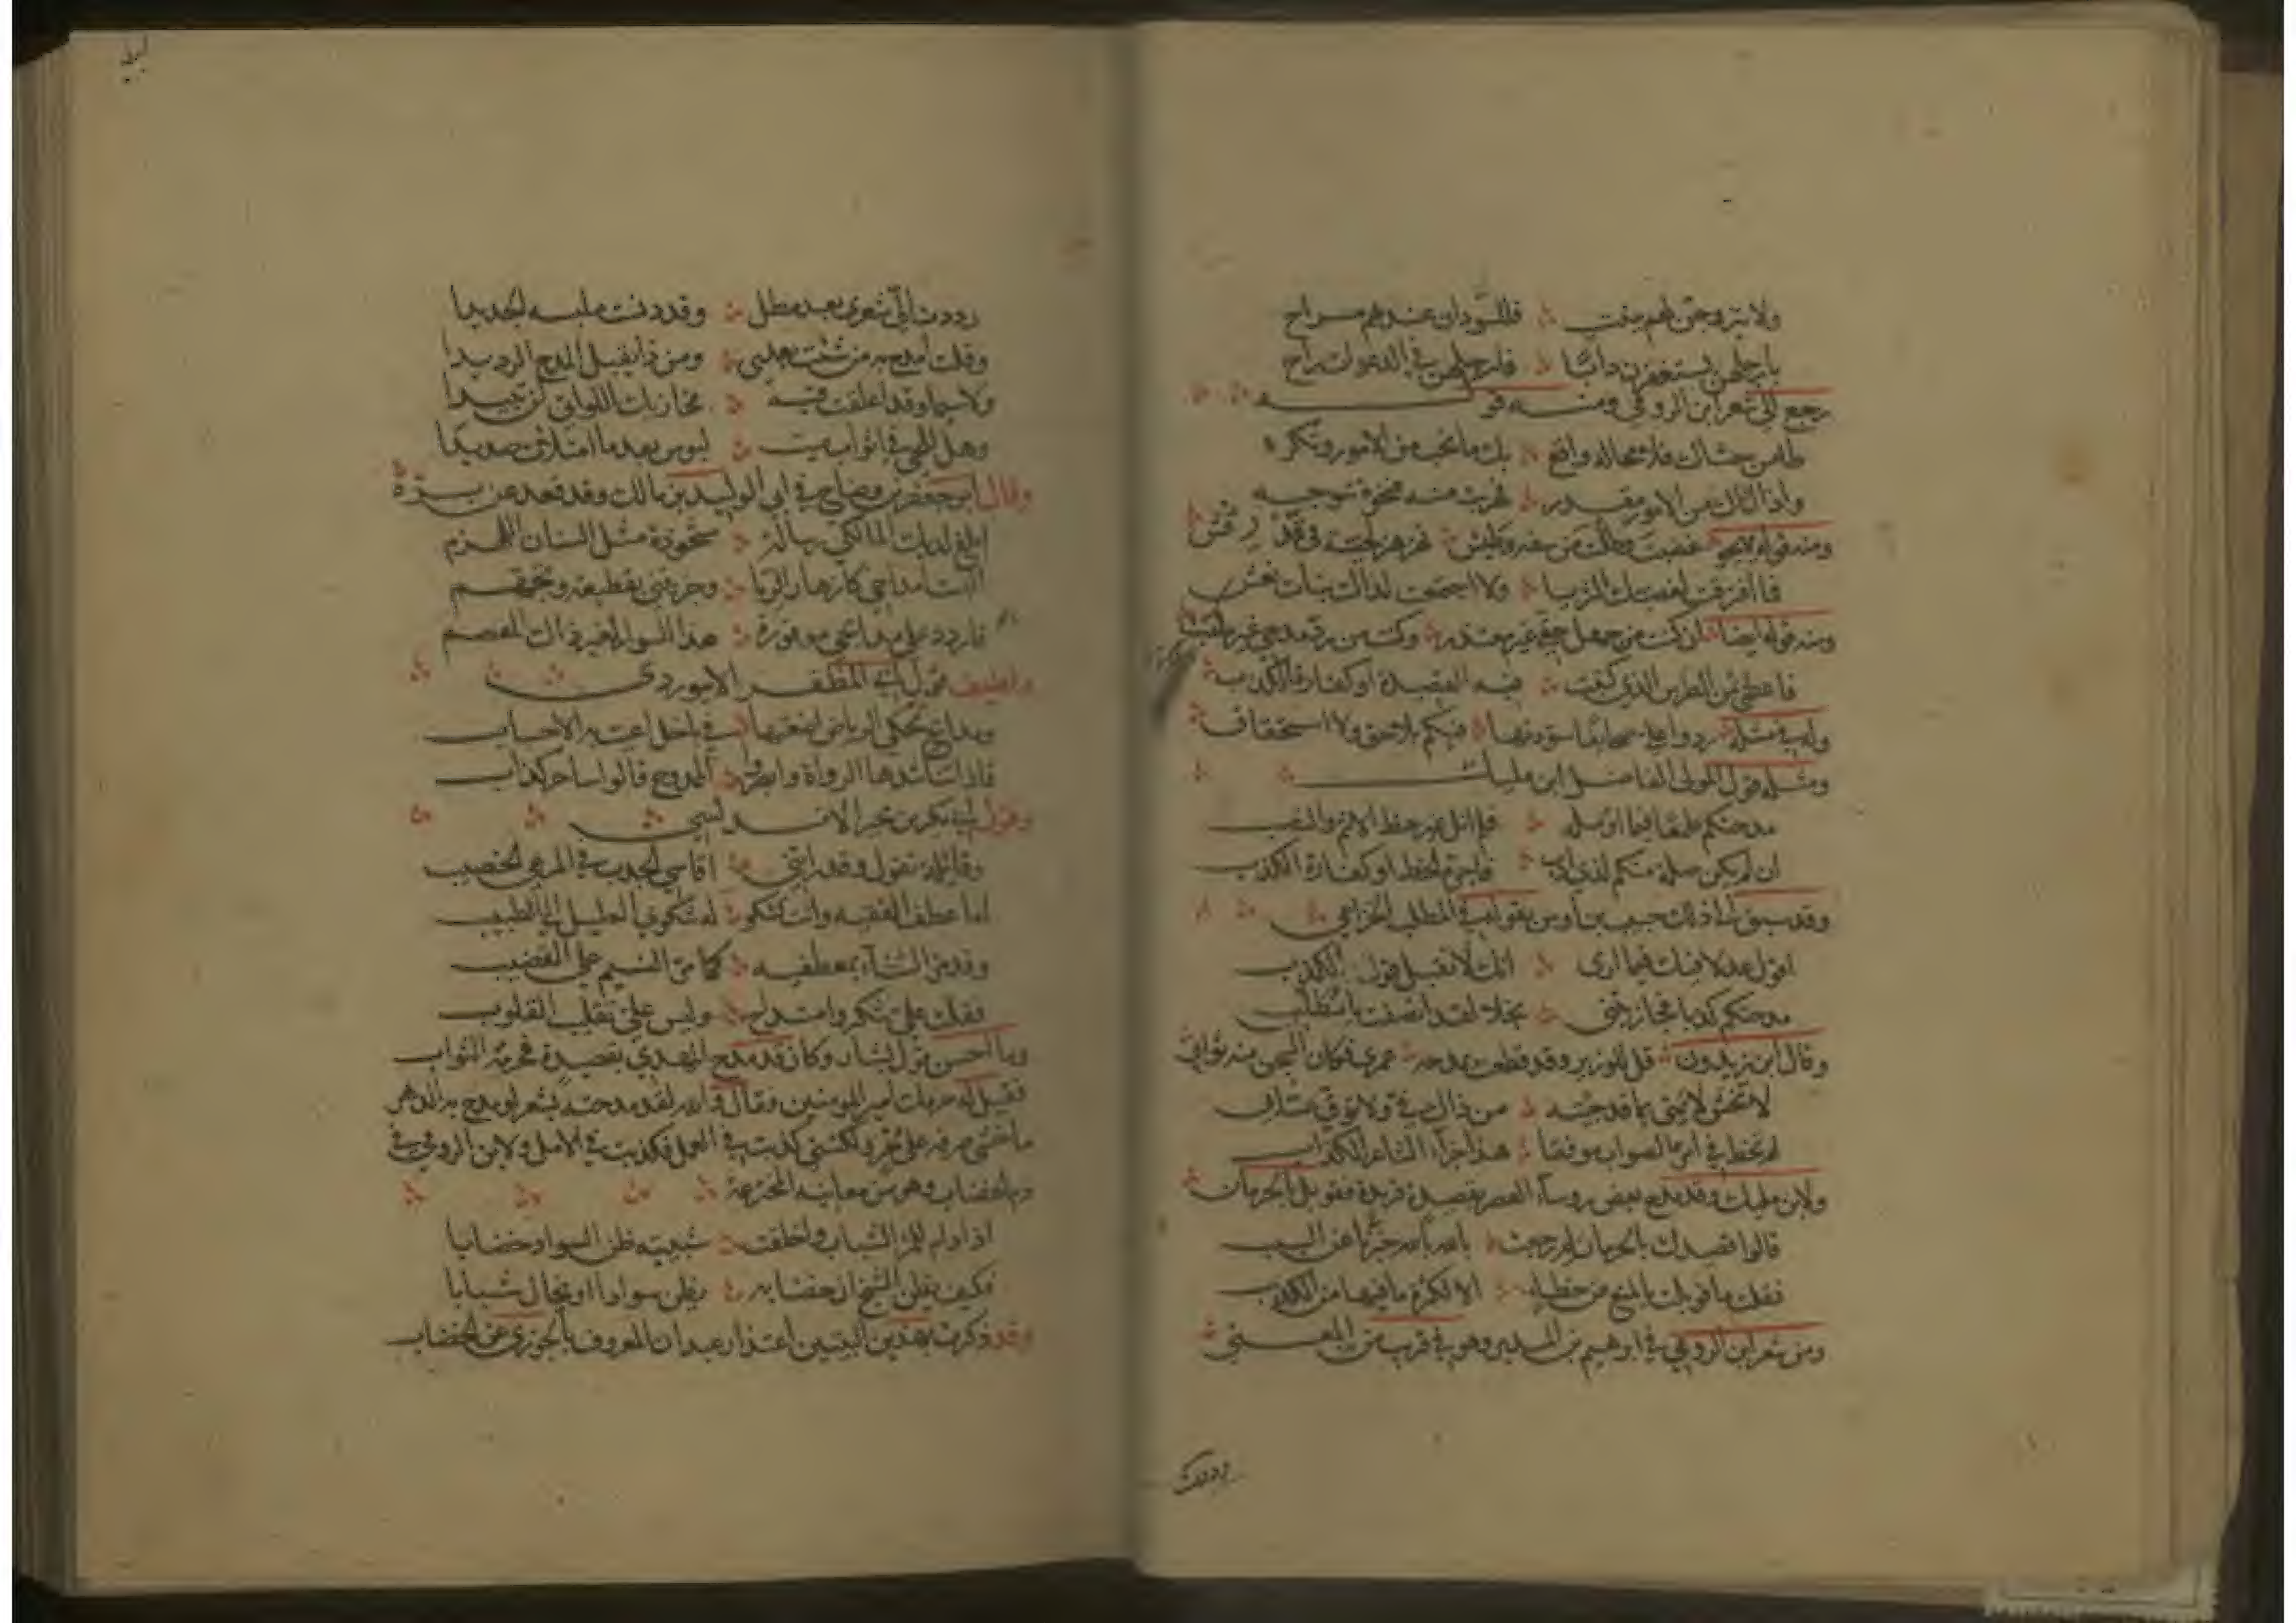 ولا يتزوجن لهم بنت فللسودان عندهم سراح
رجع الى شعر ابن الرومي ومنه قوله
طامن حشاك فلا محالة واقع بك ما تحب من الامور وتكره
واذا اتاك من الامور مقدر فهربت منه فنحوه تتوجه
ومنه قوله غضبت وظلت من سفه وطيش تهزهز لحية في قد رفش
فما افترقت لغضبتك الثريا ولا اجتمعت لذاك بنات نعش
ومنه قوله ايضا ان كنت من جهل حقي غير معتذر وكنت من رد مدحي غير متئب
فاعطني ثمن الطرس الذي كتبت فيه القصيدة او كفارة الكذب
وله في مثله ردوا علي صحائفا سودتها فيكم بلا حق ولا استحقاق
ومثله قول المولى الفاضل ابن مليك
مدحتكم طمعا فيما اؤمله فلم انل غير حظ الاثم والتعب
ان لم يكن صلة منكم لذي ادب فاجرة الخط او كفارة الكذب
وقد سبق الى ذلك حبيب بن اوس بقوله في المطلب الخزاعي
اقول عدلا فيك فيما ارى انك لا تقبل قول الكذب
مدحتكم كذبا فجازيتني بخلا لقد انصفت يا مطلب
وقال ابن زيدون قل للوزير وقد قطعت بمدحه عمري فكان السجن منه ثوابي
لا تخش لائمتي بما قد جئته من ذاك في ولا توق عتابي
لم تخط في امري الصواب موفقا هذا جزاء الشاعر الكذاب
ولابن مليك وقد مدح بعض رؤساء العصر بقصيدة فريدة فقوبل بالحرمان
قالوا قصيدك بالحرمان لم رجعت بالله بالله خبرنا عن السبب
فقلت ما قوبلت بالمنع من خطاء الا لكثرة ما فيها من الكذب
ومن شعر ابن الرومي في ابرهيم بن المدبر وهو في قرب من المعنى
رددت
رددت الي شعري بعد مطل وقد دنست ملبسه الجديدا
وقلت امدح به من شئت بعدي ومن ذا يقبل المدح الرديدا
ولا سيما وقد اعلقت فيه مخازيك اللواتي لن تبيدا
وهل للحي في اثواب ميت لبوس بعد ما امتلأت صديدا
وقال ابو جعفر بن وضاح في ابي الوليد بن مالك وقد قعد عن بره
ابلغ لديك المالكي رسالة مشحوذة مثل السنان اللهزم
فاردد علي مدائحي موفورة هذا السوار لغير ذاك المعصم
ولطيف قول ابي المظفر الابيوردي
ومدائح تحكي الرياض اضعتها في باخل اعيت به الاحساب
فاذا تناشدها الرواة وابصروا الممدوح قالوا ساحر كذاب
وقول ابي بكر بن مجبر الاندلسي
وقائلة تقول وقد رأتني اقاسي الجدب في المرعى الخصيب
اما عطف الفقيه وانت تشكو له شكوى العليل الى الطبيب
وقد مر الثناء بمعطفيه كما مر النسيم على القضيب
فقلت علي شكر وامتداح وليس علي تقليب القلوب
وما احسن قول بشار وكان قد مدح المهدي بقصيدة فحرمه الثواب
فقيل له حرمك امير المؤمنين فقال والله لقد مدحته بشعر لو مدح به الدهر
ما خشي صرفه على حر ولكنني كذبت في العمل فكذبت في الامل ولابن الرومي في
ذم الخضاب وهو من معانيه المخترعة
اذا دام للمرء الشباب واخلقت شبيبته ظن السواد خضابا
فكيف يظن الشيخ ان خضابه يظن سوادا او يخال شبابا
وقد ذكرت بهذين البيتين اعتذار عبدان المعروف بالخوزي عن الخضاب